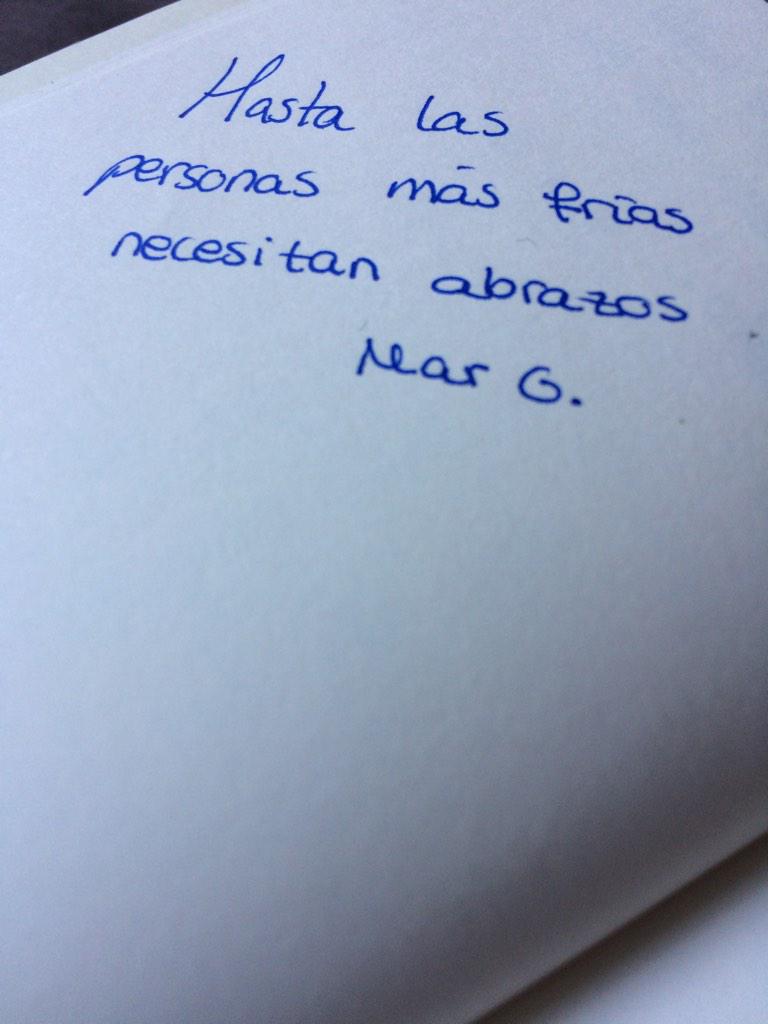 Hasta las
personas más frías
necesitan abrazos
Mar G.